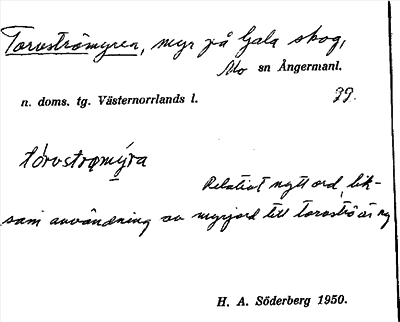 Torvströmyren, myr på Gala skog,
Mo sn Ångermanl.
n. doms. tg. Västernorrlands l. 39.
tórvstrǫmýra
Relativt nytt ord, lik-
som användning av myrjord till torvströ är ny
H. A. Söderberg 1950.